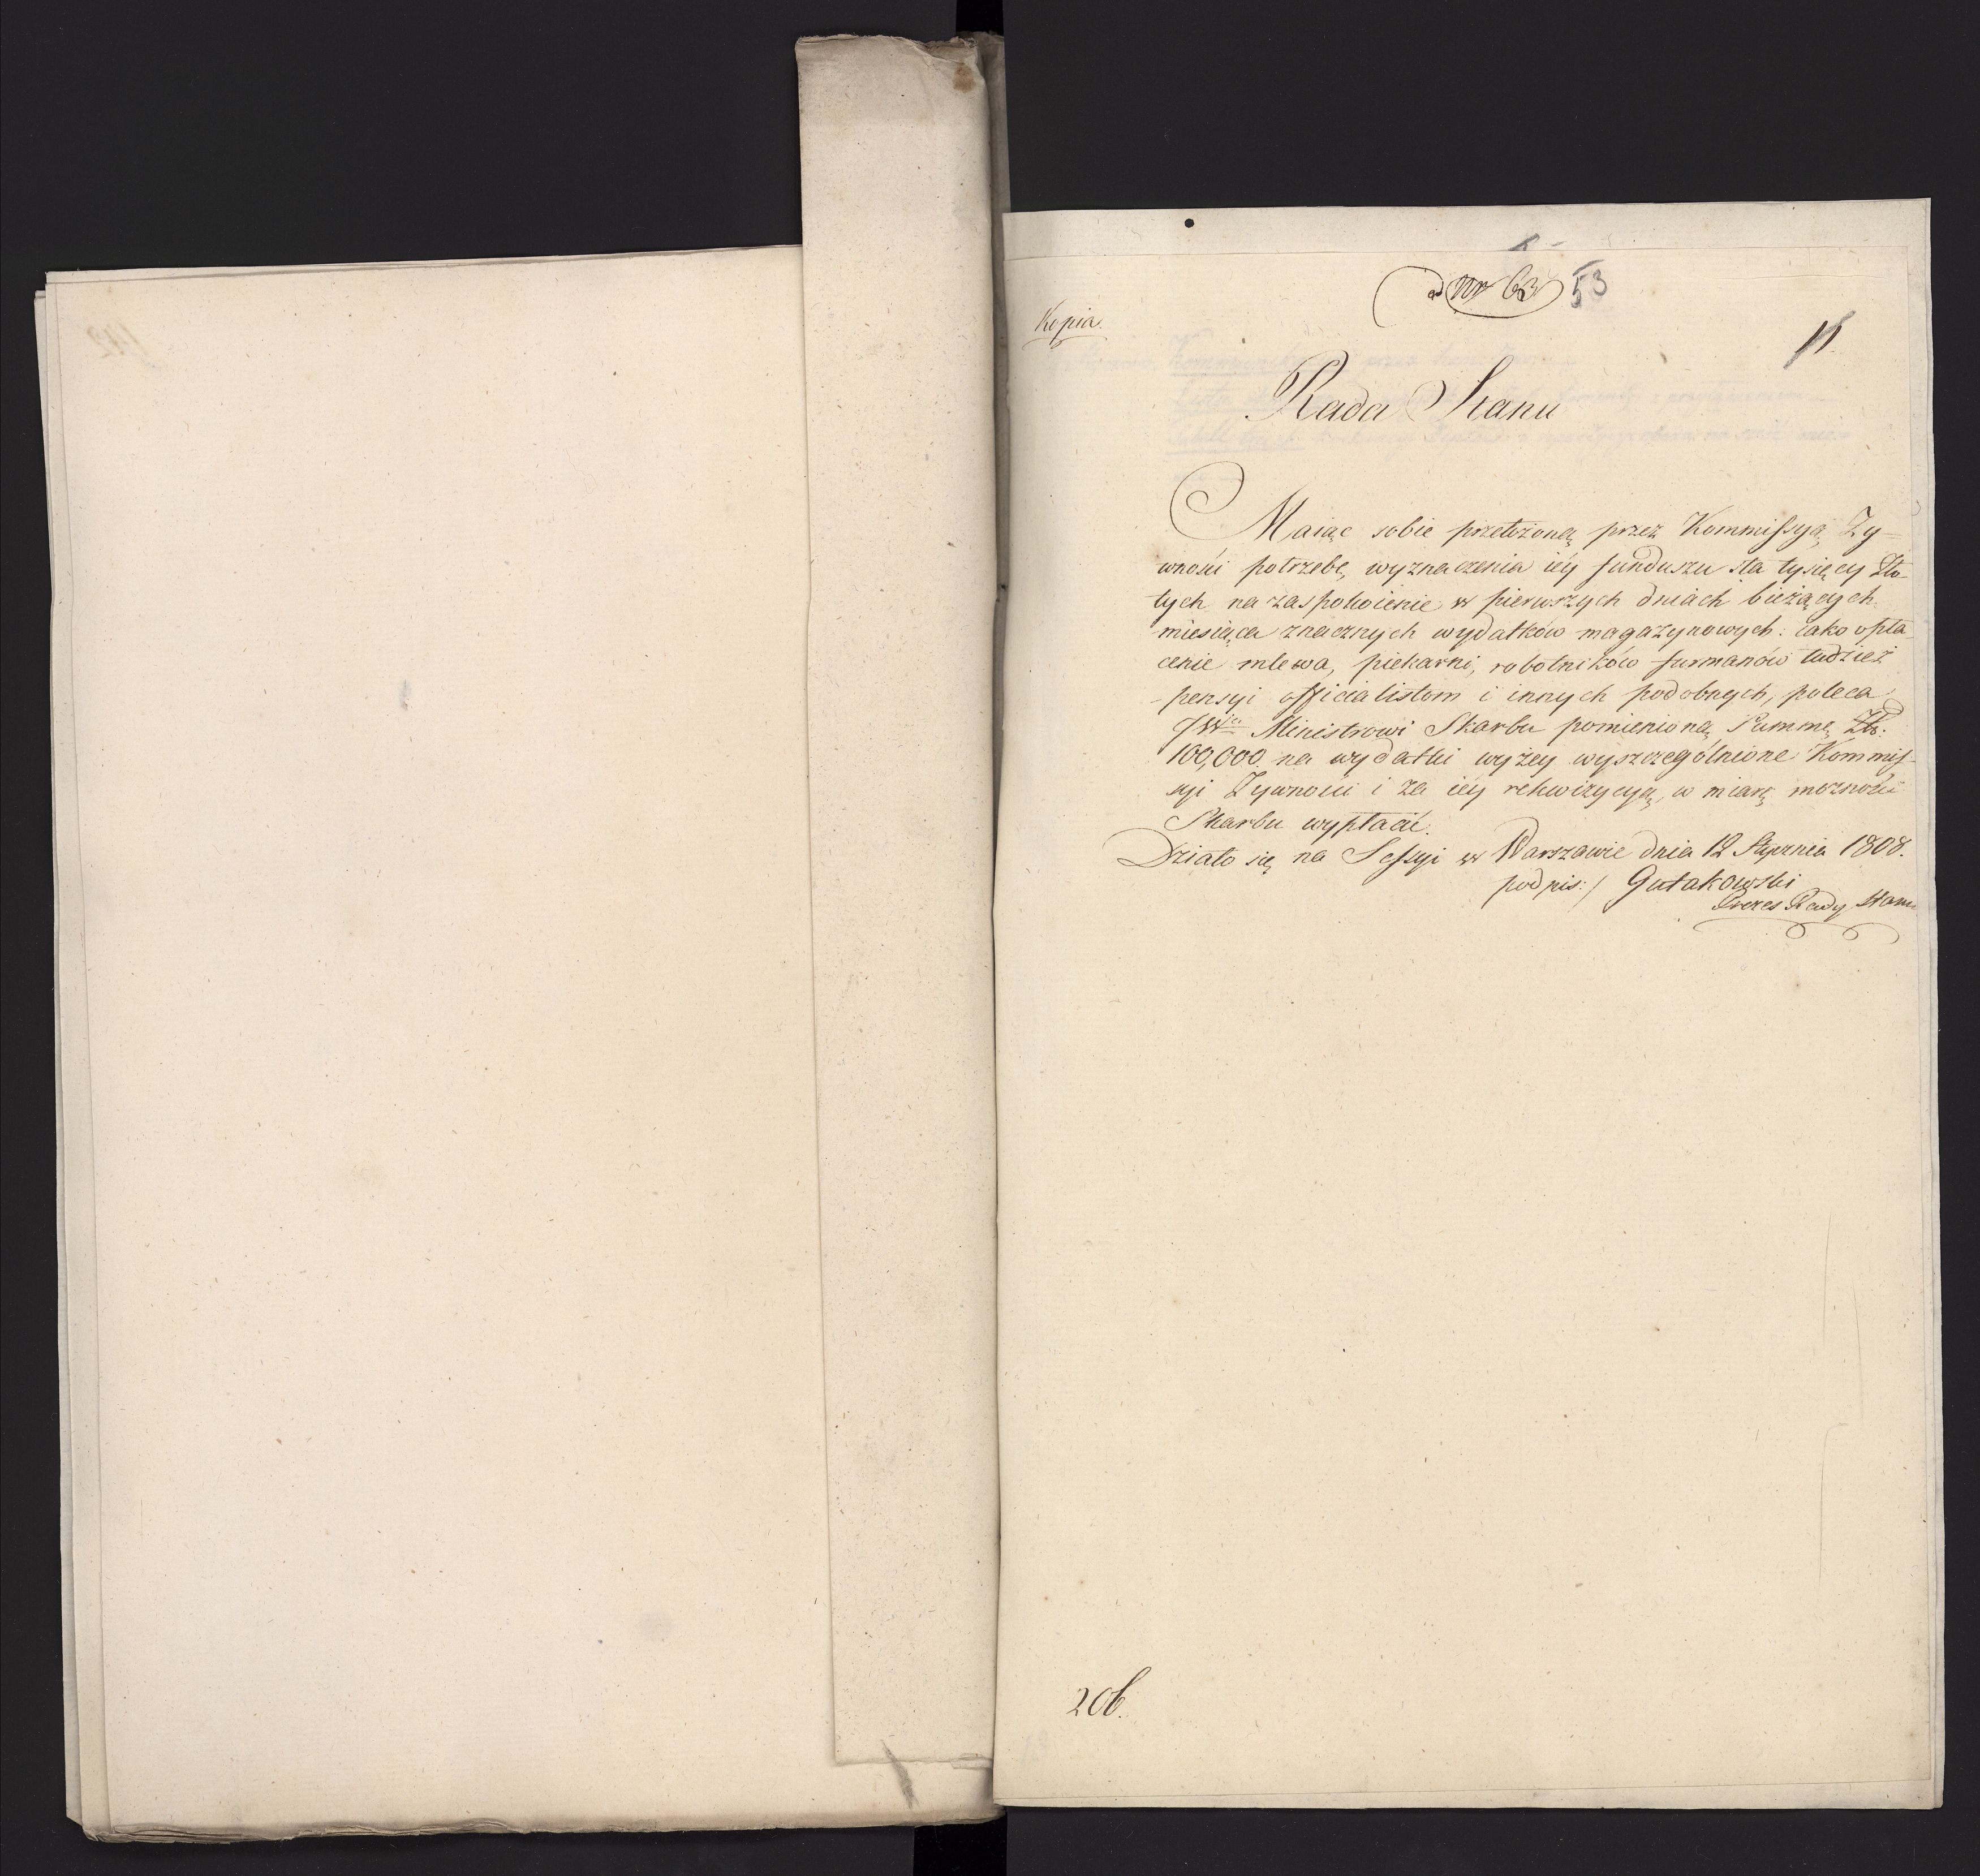 ad Nr 63 53
Kopia.
11.
Rada Stanu
Maiąc sobie przełożoną przez Kommissyą Ży-
wności potrzebę, wyznaczenia iéy funduszu sta tysięcy Zło-
tych na zaspokoienie w pierwszych dniach bieżących
miesiąca znacznych wydatków magazynowych: iako opła
cenie mlewa, piekarni, robotników furmanów tudzież
pensyi officialistom i innych podobnych, poleca
JWu Ministrowi Skarbu pomienioną Summę Zł:
100,000. na wydatki wyżey wyszczególnione Kommis-
syi Żywności i za iéy rekwizycyą, w miarę możności
Skarbu wypłacić.
Działo się na Sessyi w Warszawie dnia 12 Stycznia 1808.
podpis:/ Gutakowski
Prezes Rady Stanu
206.